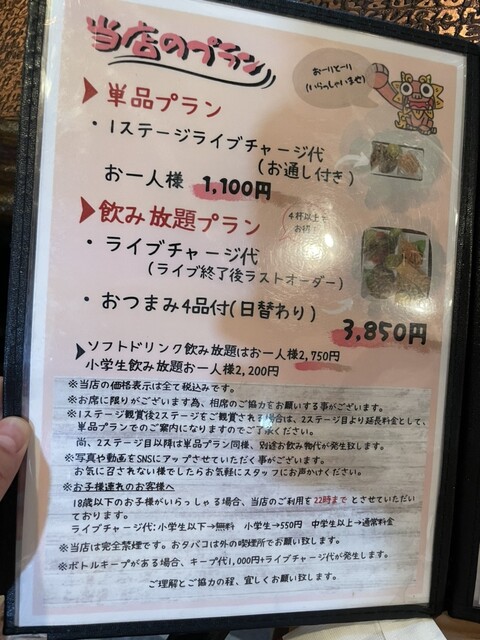 当店のプラン
おーりとーり
(いらっしゃいませ)
単品プラン
・1ステージライブチャージ代
(お通し付き)
お一人様 1,100円
飲み放題プラン
4杯以上で
お得!
・ライブチャージ代
(ライブ終了後ラストオーダー)
・おつまみ4品付(日替わり)
3,850円
ソフトドリンク飲み放題はお一人様2,750円
小学生飲み放題お一人様2,200円
※当店の価格表示は全て税込みです。
※お席に限りがございます為、相席のご協力をお願いする事がございます。
※1ステージ観賞後2ステージをご観賞される場合は、2ステージ目より延長料金として、
単品プランでのご案内になりますのでご了承ください。
尚、2ステージ目以降は単品プラン同様、別途お飲み物代が発生致します。
※写真や動画をSNSにアップさせていただく事がございます。
お気に召されない様でしたらお気軽にスタッフにお声かけください。
※お子様連れのお客様へ
18歳以下のお子様がいらっしゃる場合、当店のご利用を22時までとさせていただい
ております。
ライブチャージ代:小学生以下→無料 小学生→550円 中学生以上→通常料金
※当店は完全禁煙です。おタバコは外の喫煙所でお願い致します。
※ボトルキープがある場合、キープ代1,000円+ライブチャージ代が発生します。
ご理解とご協力の程、宜しくお願い致します。